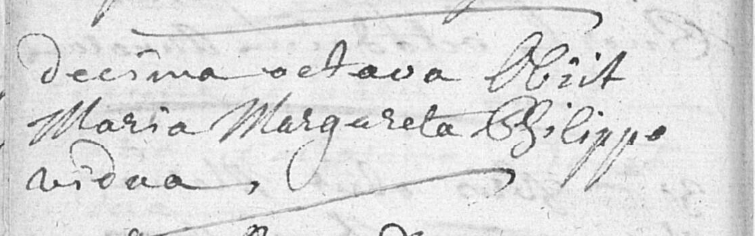 decima octava Obiit
Maria Margareta Philippo
vidua,